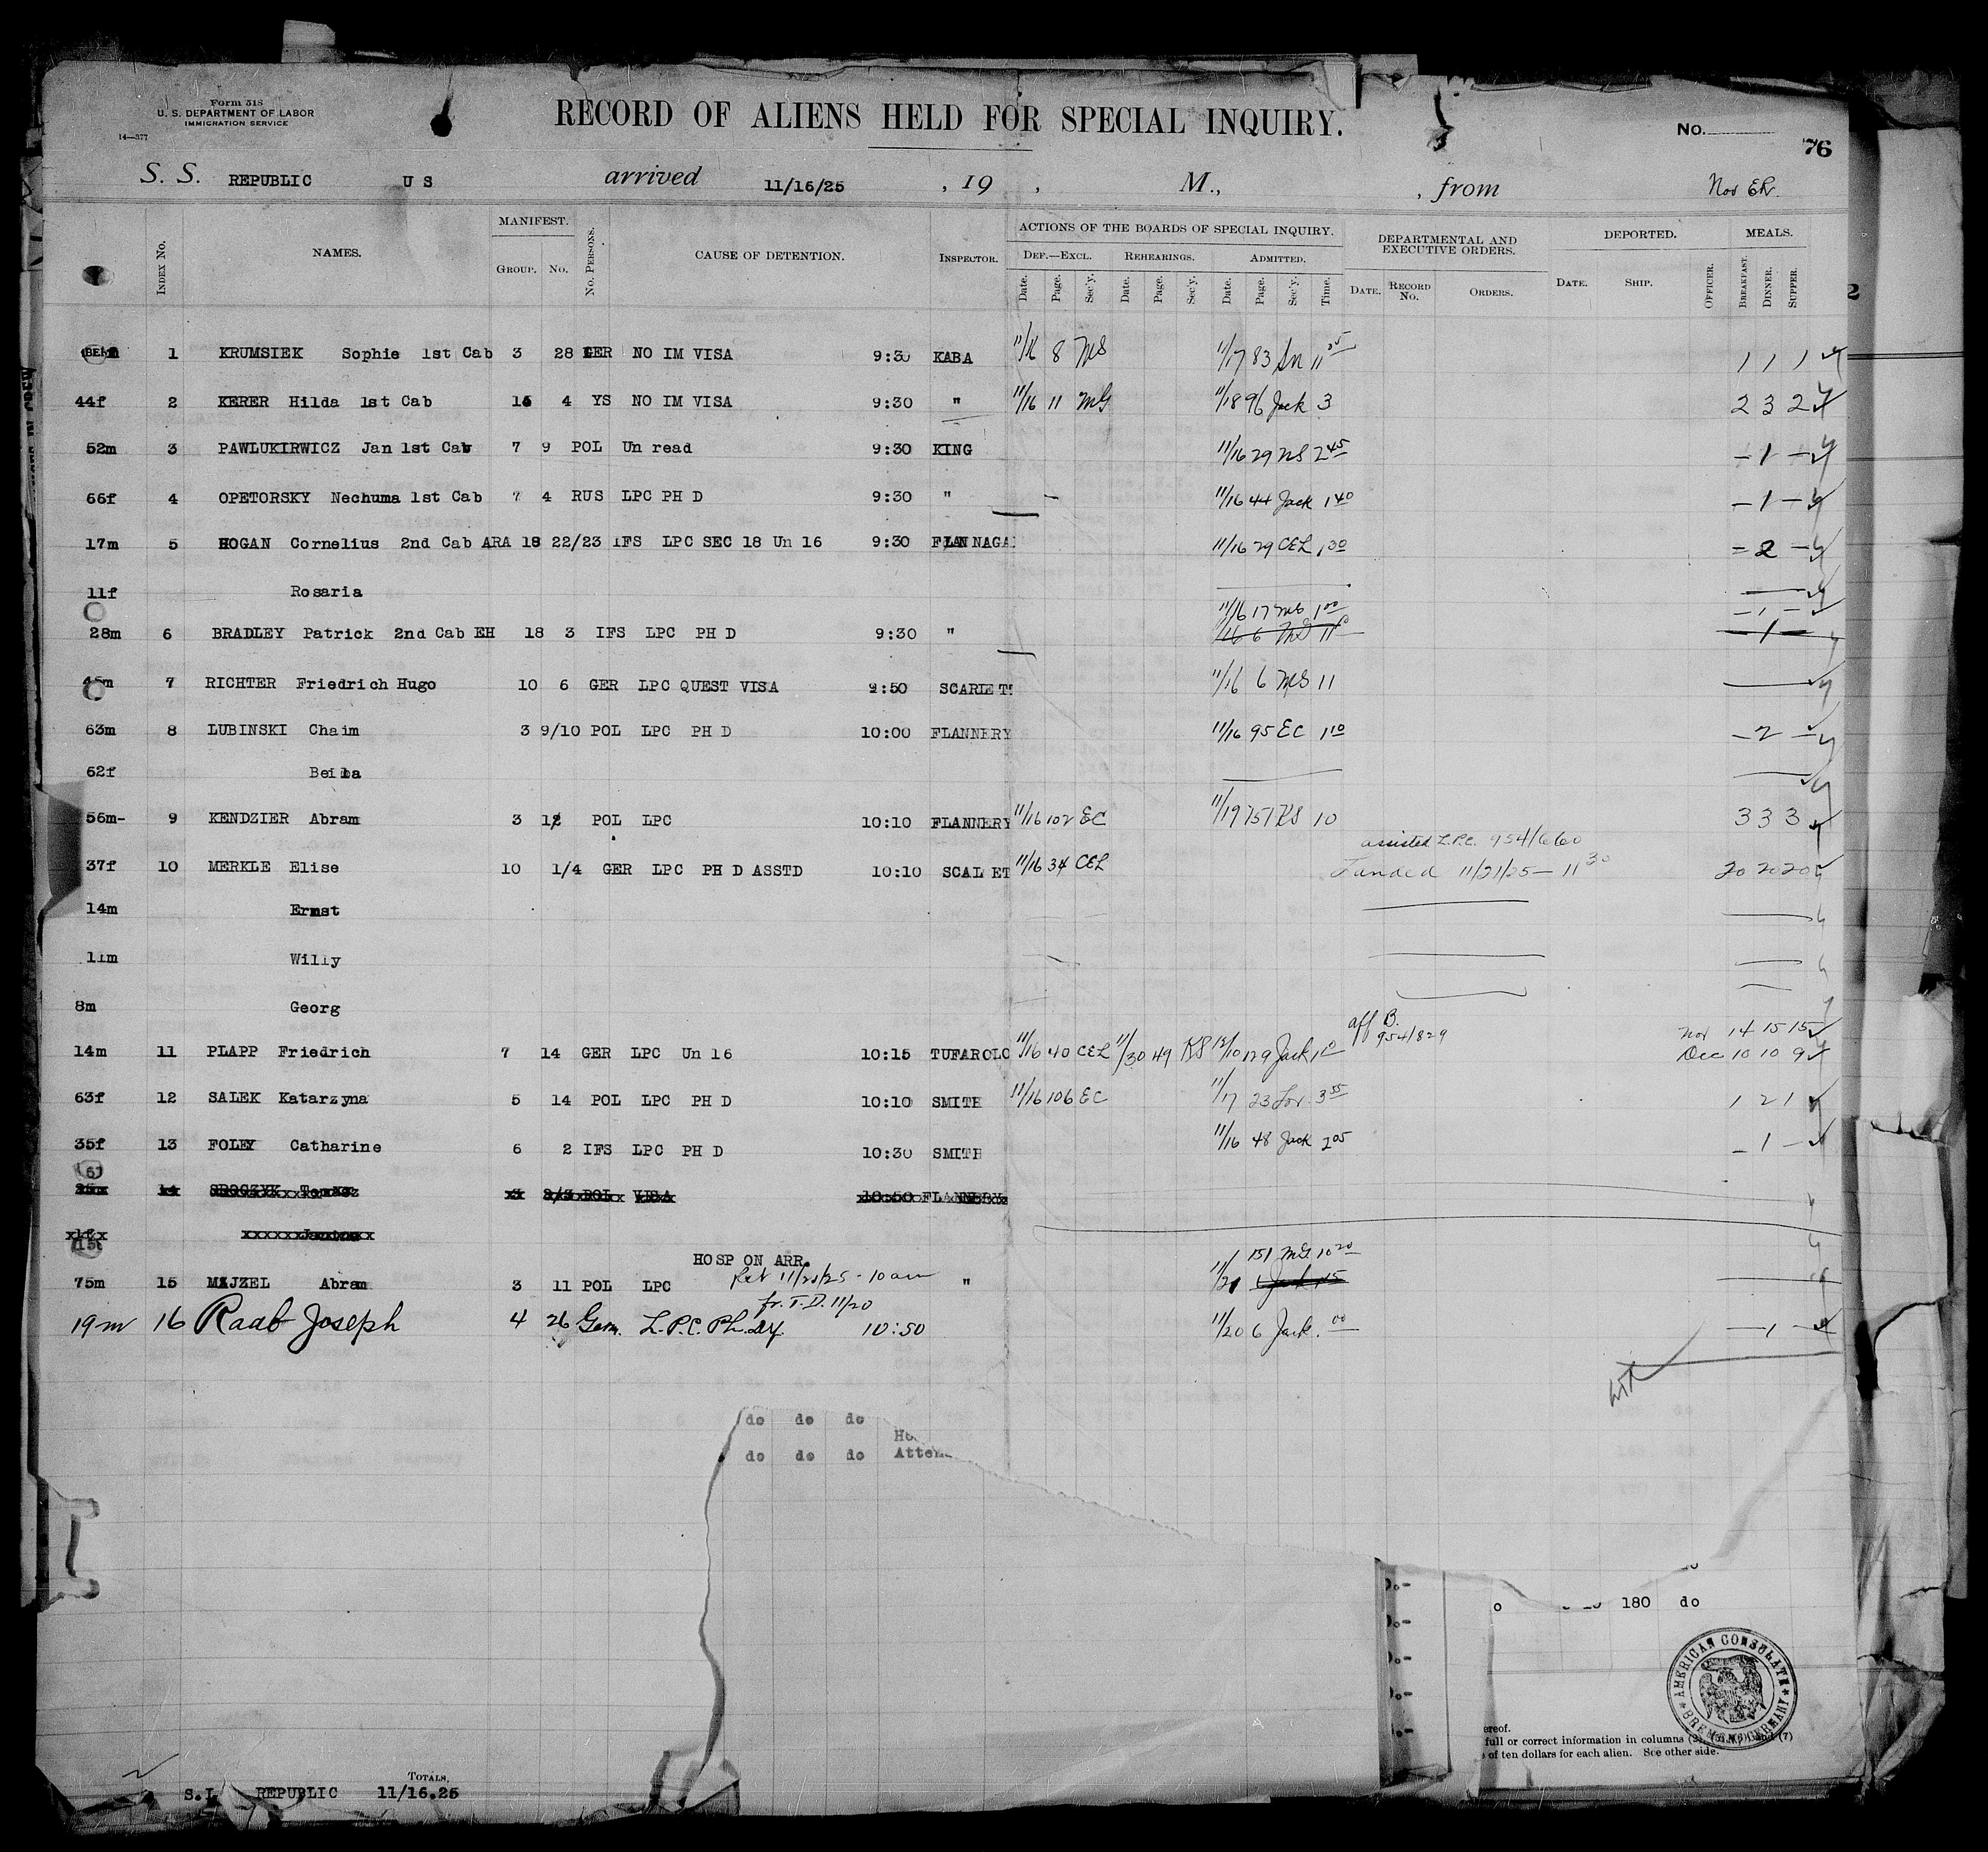 Form 518
U. S. DEPARTMENT OF LABOR
IMMIGRATION SERVICE
14—377
RECORD OF ALIENS HELD FOR SPECIAL INQUIRY.
No.
76
S. S. REPUBLIC U S arrived 11/16/25 , 19 , M., , from Nov
Index No. NAMES. MANIFEST. Group. No. No. Persons. CAUSE OF DETENTION. Inspector. ACTIONS OF THE BOARDS OF SPECIAL INQUIRY. DEPARTMENTAL AND EXECUTIVE ORDERS. DEPORTED. MEALS.
Def.—Excl. Rehearings. Admitted.
Date. Page. Sec'y. Date. Page. Sec'y. Date. Page. Sec'y. Time. Date. Record No. Orders. Date. Ship. Officer. Breakfast. Dinner. Supper.
2
1 KRUMSIEK Sophie 1st Cab 3 28 GER NO IM VISA 9:30 KABA 11/16 8 MS 11/17 83 11 1 1 1
44f 2 KERER Hilda 1st Cab 4 YS NO IM VISA 9:30 " 11/16 11 MG 11/18 96 Jack 3 2 3 2
52m 3 PAWLUKIRWICZ Jan 1st Cab 7 9 POL Un read 9:30 KING 11/16 29 MS 2 45 — 1 —
66f 4 OPETORSKY Nechuma 1st Cab 7 4 RUS LPC PH D 9:30 " 11/16 44 Jack 1 40 — 1 —
17m 5 HOGAN Cornelius 2nd Cab ARA 18 22/23 IFS LPC SEC 18 Un 16 9:30 FLANNAGA 11/16 29 CEL 1 30 — 2 —
11f Rosaria
11/16 17 MG 1 00 — 1 —
28m 6 BRADLEY Patrick 2nd Cab EH 18 3 IFS LPC PH D 9:30 " 11/16 6 MS 11 — 1 —
7 RICHTER Friedrich Hugo 10 6 GER LPC QUEST VISA 9:50 SCARLETT 11/16 6 MS 11
63m 8 LUBINSKI Chaim 3 9/10 POL LPC PH D 10:00 FLANNERY 11/16 95 EC 1 10 — 2 —
62f Beila
56m- 9 KENDZIER Abram 3 12 POL LPC 10:10 FLANNERY 11/16 102 EC 11/19 151 KS 10 3 3 3
assisted L.P.C. 954/660
37f 10 MERKLE Elise 10 1/4 GER LPC PH D ASSTD 10:10 SCAL ET 11/16 34 CEL Landed 11/21/25 — 11 30 20 20 20
14m Ernst
11m Willy
8m Georg
aff B. 954/829 Nov 14 15 15
14m 11 PLAPP Friedrich 7 14 GER LPC Un 16 10:15 TUFAROLO 11/16 40 CEL 11/30 49 KS 12/10 129 Jack Dec 10 10 9
63f 12 SALEK Katarzyna 5 14 POL LPC PH D 10:10 SMITH 11/16 106 EC 11/17 23 3 55 1 2 1
35f 13 FOLEY Catharine 6 2 IFS LPC PH D 10:30 SMITH 11/16 48 Jack 2 05 — 1 —
14 3 2/3 POL VISA 10:50 FLANNERY
HOSP ON ARR.
75m 15 MAJZEL Abram 3 11 POL LPC Ret 11/20/25 - 10 am " 11/21 151 MG 10 20
fr. T.D. 11/20
19m 16 Raab Joseph 4 26 Gem. L.P.C. Ph. Df. 10:50 11/20 6 Jack. 00 — 1 —
do do do
do do do
180 do
AMERICAN CONSULATE
BREMEN GERMANY
ereof.
full or correct information in columns
of ten dollars for each alien. See other side.
Totals,
S.I. REPUBLIC 11/16.25